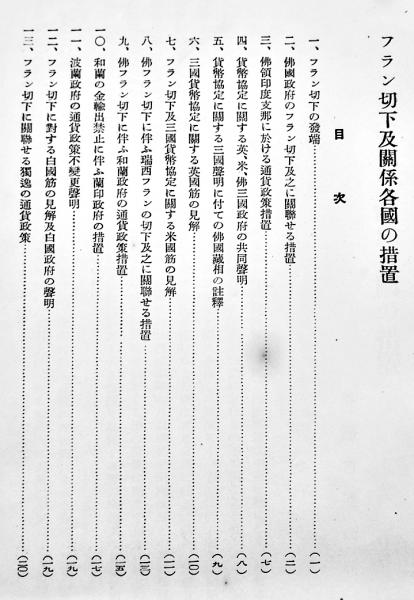 フラン切下及關係各國の措置
目次
一、フラン切下の發端……(一)
二、佛國政府のフラン切下及之に關聯せる措置……(二)
三、佛領印度支那に於ける通貨政策措置……(七)
四、貨幣協定に關する英、米、佛三國政府の共同聲明……(八)
五、貨幣協定に關する三國聲明に付ての佛國藏相の註釋……(九)
六、三國貨幣協定に關する英國筋の見解……(一〇)
七、フラン切下及三國貨幣協定に關する米國筋の見解……(一一)
八、佛フラン切下に伴ふ瑞西フランの切下及之に關聯せる措置……(一三)
九、佛フラン切下に伴ふ和蘭政府の通貨政策措置……(一五)
一〇、和蘭の金輸出禁止に伴ふ蘭印政府の措置……(一七)
一一、波蘭政府の通貨政策不變更聲明……(一九)
一二、フラン切下に對する白國筋の見解及白國政府の聲明……(一九)
一三、フラン切下に關聯せる獨逸の通貨政策……(二〇)